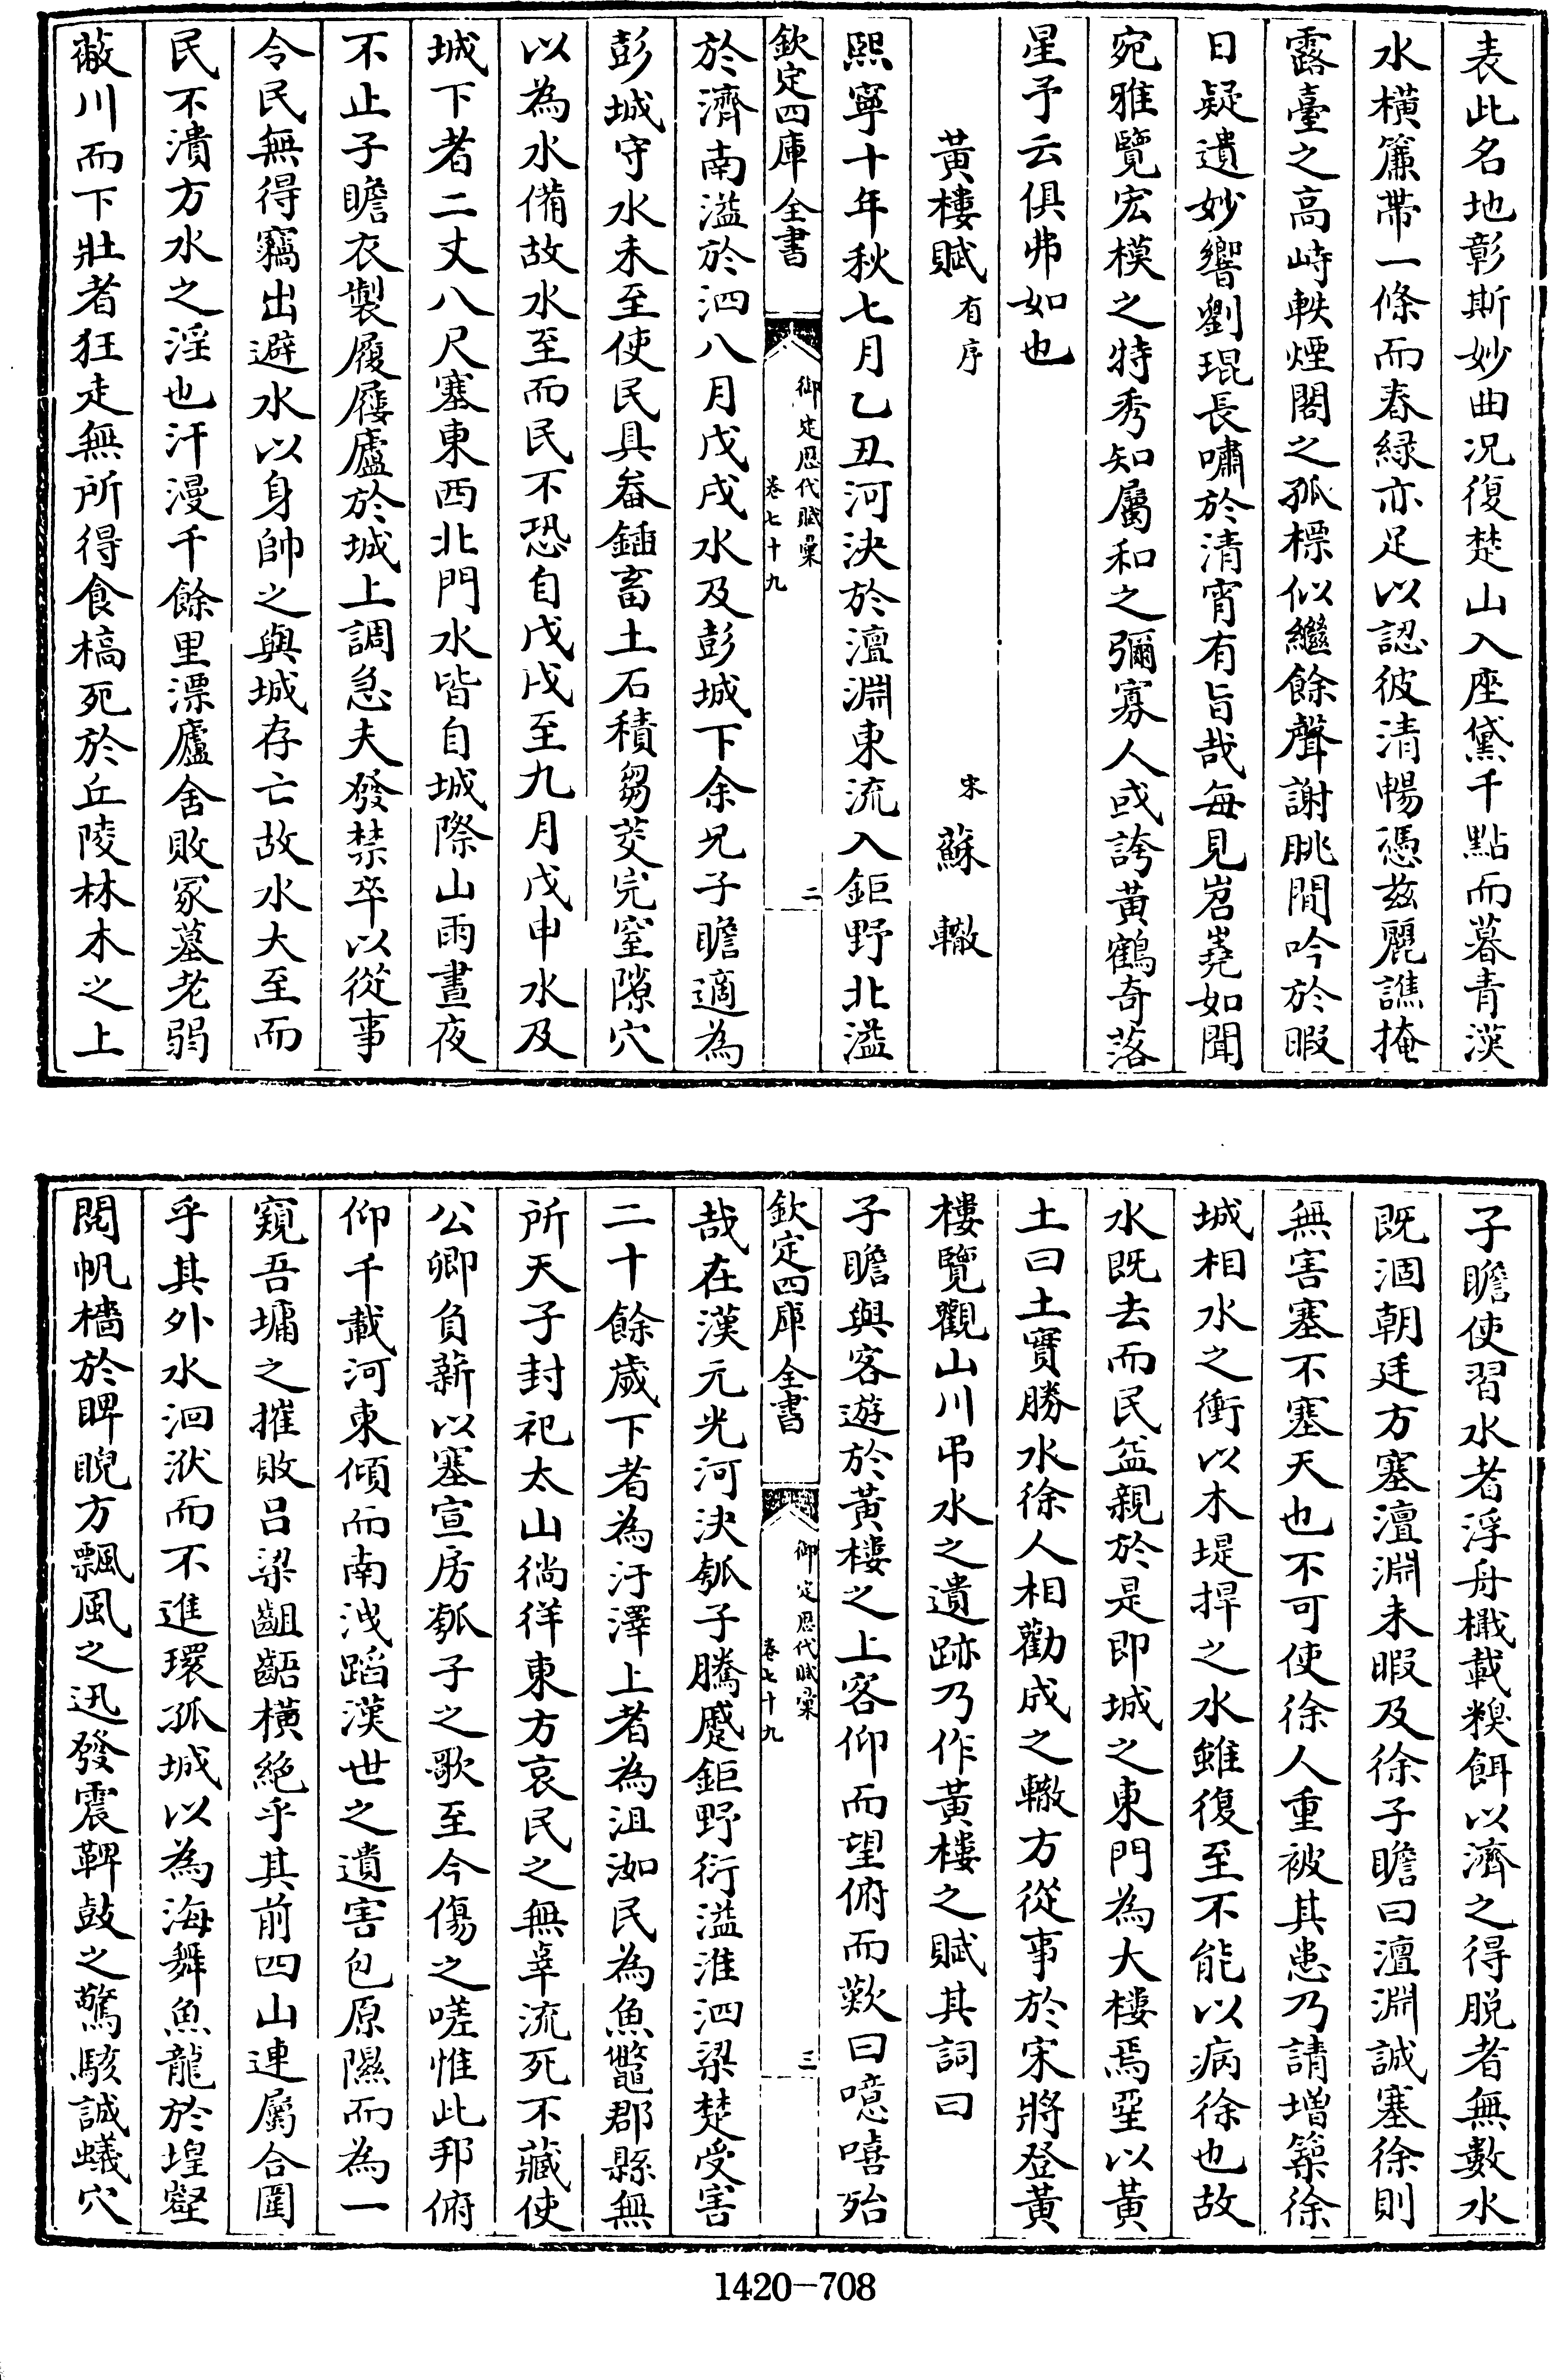 表此名地彰斯妙曲况復楚山入座黛千點而暮青漢
水橫簾帶一條而春緑亦足以認彼清暢憑兹麗譙掩
露臺之高峙軼煙閣之孤標似繼餘聲謝朓閒吟於暇
日疑遺妙響劉琨長嘯於清宵有旨哉每見岧嶤如聞
宛雅覽宏模之特秀知屬和之彌寡人或誇黄鶴奇落
星予云俱弗如也
黄樓賦有序 宋 蘇 轍
熙寧十年秋七月乙丑河決於澶淵東流入鉅野北溢
欽定四庫全書 御定歷代賦彙 卷七十九 二
於濟南溢於泗八月戊戌水及彭城下余兄子瞻適為
彭城守水未至使民具畚鍤畜土石積芻茭完窒隙穴
以為水備故水至而民不恐自戊戌至九月戊申水及
城下者二丈八尺塞東西北門水皆自城際山雨晝夜
不止子瞻衣製履屨廬於城上調急夫發禁卒以從事
令民無得竊出避水以身帥之與城存亡故水大至而
民不潰方水之淫也汗漫千餘里漂廬舍敗冢墓老弱
蔽川而下壯者狂走無所得食槁死於丘陵林木之上
子瞻使習水者浮舟檝載糗餌以濟之得脱者無數水
既涸朝廷方塞澶淵未暇及徐子瞻曰澶淵誠塞徐則
無害塞不塞天也不可使徐人重被其患乃請増築徐
城相水之衝以木堤捍之水雖復至不能以病徐也故
水既去而民益親於是即城之東門為大樓焉堊以黄
土曰土實勝水徐人相勸成之轍方從事於宋將登黄
樓覽觀山川弔水之遺跡乃作黄樓之賦其詞曰
子瞻與客遊於黄樓之上客仰而望俯而歎曰噫嘻殆
欽定四庫全書 御定歷代賦彙 卷七十九 三
哉在漢元光河決瓠子騰蹙鉅野衍溢淮泗梁楚受害
二十餘歲下者為汙澤上者為沮洳民為魚鼈郡縣無
所天子封祀太山徜徉東方哀民之無辜流死不藏使
公卿負薪以塞宣房瓠子之歌至今傷之嗟惟此邦俯
仰千載河東傾而南洩蹈漢世之遺害包原隰而為一
窺吾墉之摧敗呂梁齟齬橫絶乎其前四山連屬合圍
乎其外水洄洑而不進環孤城以為海舞魚龍於隍壑
閱帆檣於睥睨方飄風之迅發震鞞鼓之驚駭誠蟻穴
1420-708